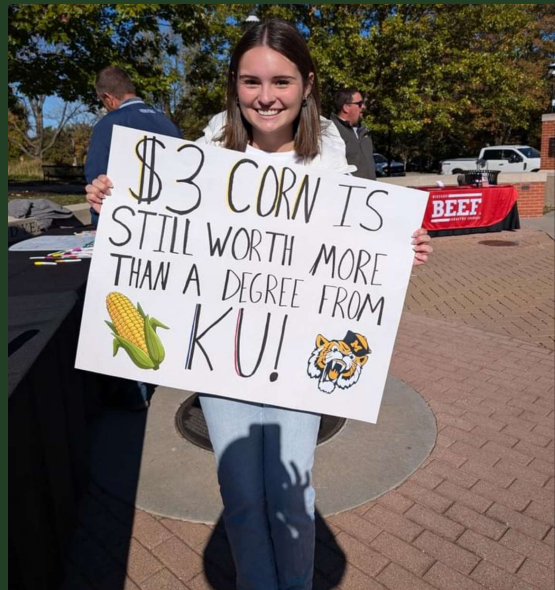 $3 CORN IS
STILL WORTH MORE
THAN A DEGREE FROM
KU!
M
BEEF